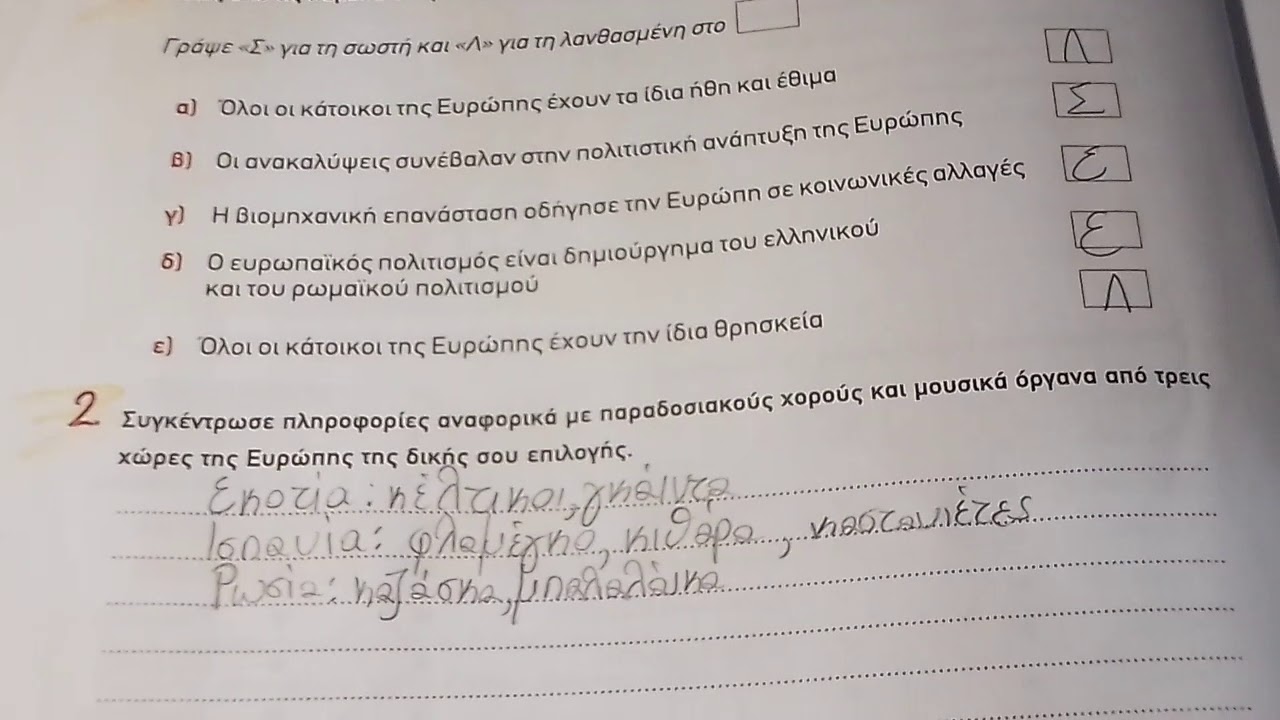 Γράψε «Σ» για τη σωστή και «Λ» για τη λανθασμένη στο
α) Όλοι οι κάτοικοι της Ευρώπης έχουν τα ίδια ήθη και έθιμα Λ
β) Οι ανακαλύψεις συνέβαλαν στην πολιτιστική ανάπτυξη της Ευρώπης Σ
γ) Η βιομηχανική επανάσταση οδήγησε την Ευρώπη σε κοινωνικές αλλαγές Σ
δ) Ο ευρωπαϊκός πολιτισμός είναι δημιούργημα του ελληνικού Σ
και του ρωμαϊκού πολιτισμού
ε) Όλοι οι κάτοικοι της Ευρώπης έχουν την ίδια θρησκεία Λ
2 Συγκέντρωσε πληροφορίες αναφορικά με παραδοσιακούς χορούς και μουσικά όργανα από τρεις
χώρες της Ευρώπης της δικής σου επιλογής.
Σκοτία: κέλτικοι, γκάιντα
Ισπανία: φλαμέγκο, κιθάρα, καστανιέτες
Ρωσία: καζάσκα, μπαλαλάικα